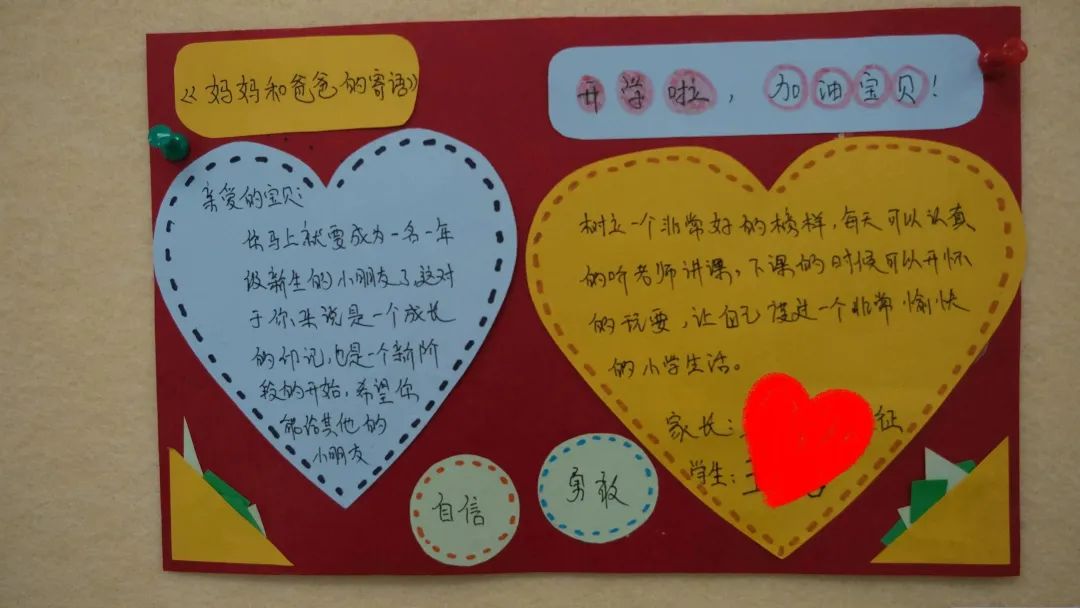 《妈妈和爸爸的寄语》
开学啦，加油宝贝！
亲爱的宝贝：
你马上就要成为一名一年
级新生的小朋友了，这对
于你来说是一个成长
的印记，也是一个新阶
段的开始，希望你
能给其他的
小朋友
树立一个非常好的榜样，每天可以认真
的听老师讲课，下课的时候可以开怀
的玩耍，让自己度过一个非常愉快
的小学生活。
家长：
征
学生：
自信
勇敢